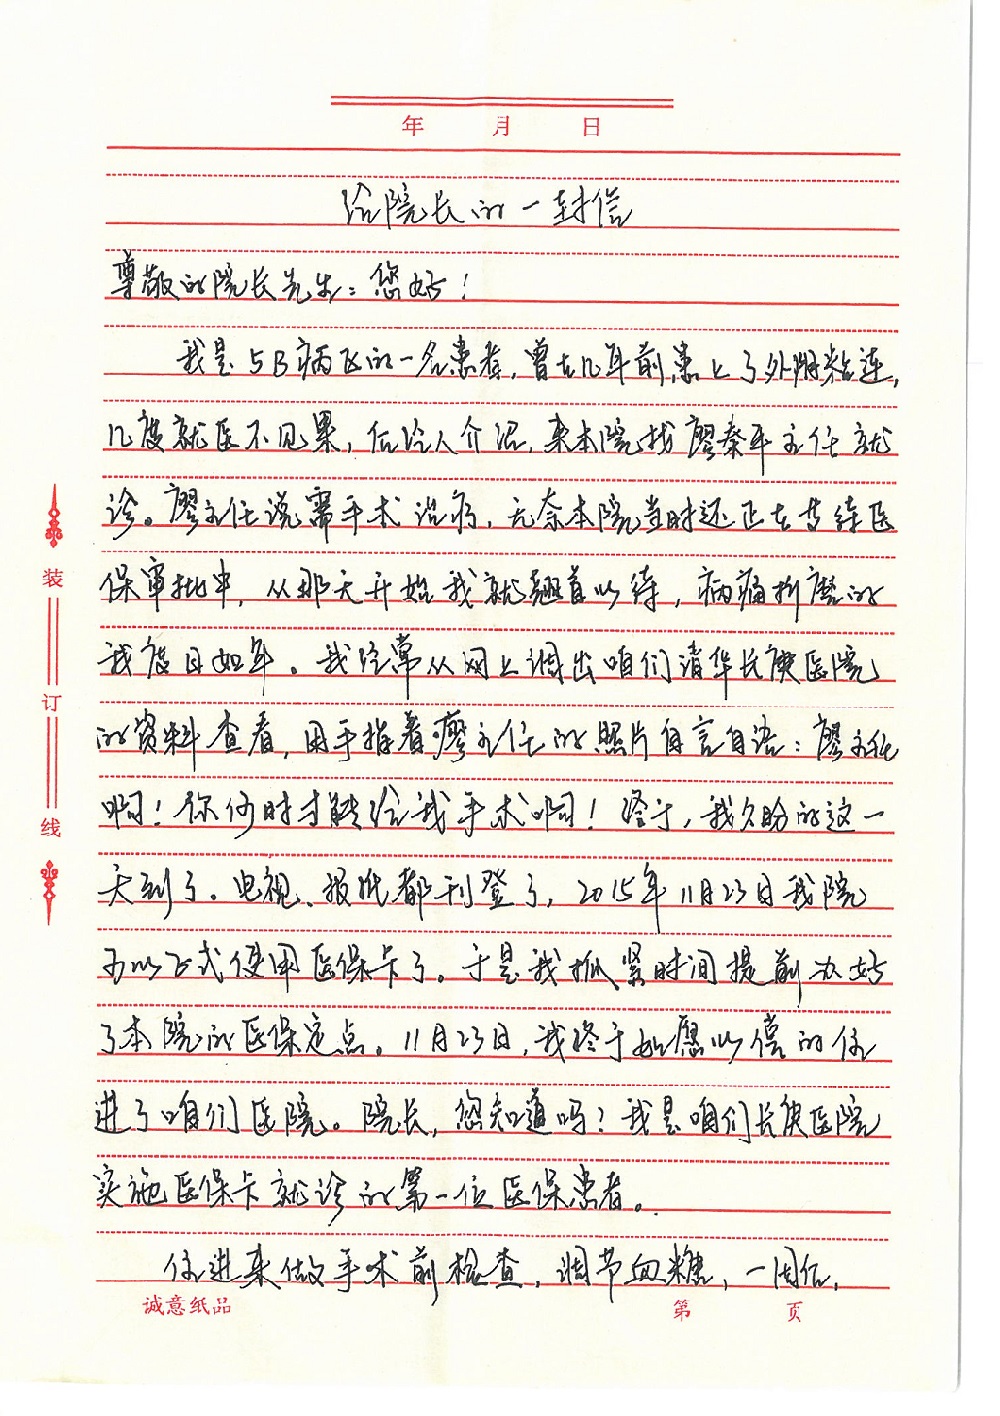 年 月 日
给院长的一封信
尊敬的院长先生：您好！
我是5B病区的一名患者，曾在几年前患上了外阴粘连，
几度就医不见果，后经人介绍，来本院找廖秦平主任就
诊。廖主任说需手术治疗，无奈本院当时还正在等待医
保审批中，从那天开始我就翘首以待，病痛折磨的
我度日如年。我经常从网上调出咱们清华长庚医院
的资料查看，用手指着廖主任的照片自言自语：廖主任
啊！你何时才能给我手术啊！终于，我久盼的这一
天到了。电视、报纸都刊登了，2015年11月23日我院
可以正式使用医保卡了。于是我抓紧时间提前办好
了本院的医保定点。11月23日，我终于如愿以偿的住
进了咱们医院。院长，您知道吗？我是咱们长庚医院
实施医保卡就诊的第一位医保患者。
住进来做手术前检查，调节血糖，一周后，
装
订
线
诚意纸品 第 页